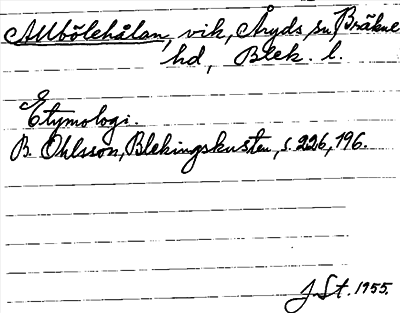 Allbölehålan, vik, Åryds sn, Bräkne
hd, Blek. l.
Etymologi.
B. Ohlsson, Blekingskusten, s. 226, 196.
J. St. 1955.